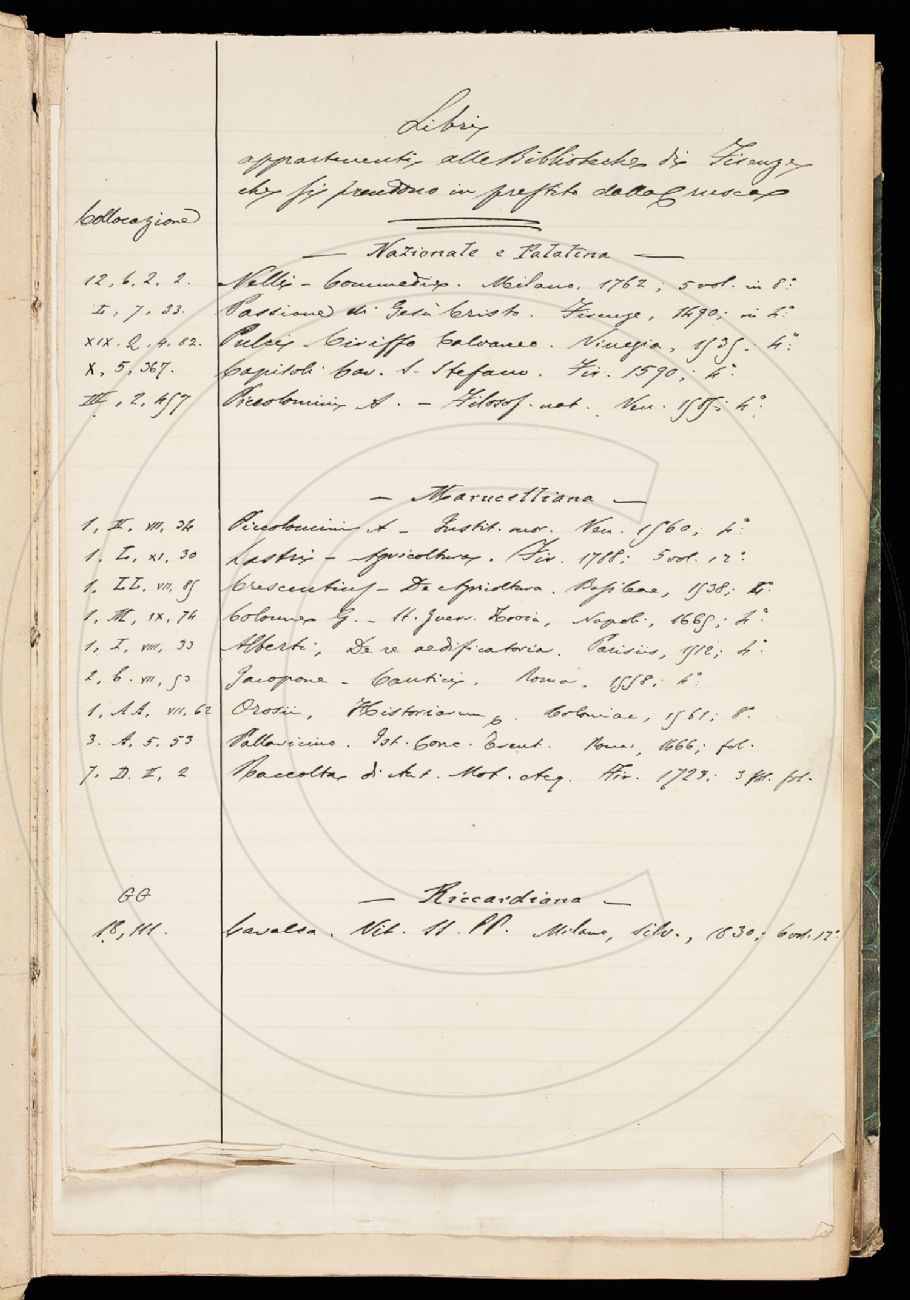 Libri
appartenenti alle Biblioteche di Firenze
che si prendono in prestito dalla Crusca
Collocazione
— Nazionale e Palatina —
12, 6, 2, 2. Nelli – Commedie. Milano, 1762; 5 vol. in 8.°
I, 7, 33. Passione di Gesù Cristo. Firenze, 1490; in 4.°
XIX. 2, 4, 82. Pulci Ciriffo Calvaneo. Vinegia, 1535. 4.°
X, 5, 367. Capitoli Cav. S. Stefano. Fir. 1590; 4.°
III, 2, 457 Piccolomini A. – Filosof. nat. Ven. 1585; 4.°
— Marucelliana —
1, II. VIII, 34 Piccolomini A – Instit. mor. Ven. 1560; 4.°
1. L, XI, 30 Lastri – Agricoltura. Fir. 1788; 5 vol. 12.°
1, LL. VII, 85 Crescentius – De Agricoltura. Basileae, 1538; 4.°
1, M, IX, 74 Colonne G. – St. Guerr. Troia, Napoli, 1665; 4.°
1, I, VIII, 33 Alberti, De re aedificatoria. Parisiis, 1512; 4.°
2, 6. VII, 53 Jacopone – Cantici. Roma, 1558; 4.°
1, AA, VII, 62 Orosii, Historiarum. Coloniae, 1561; 8.°
3. A, 5, 53 Pallavicino. Ist. Conc. Trent. Roma, 1666; fol.
7. D. II, 2 Raccolta di Aut. Mot. Acq. Fir. 1723; 3 fol.
GG — Riccardiana —
18, III. Cavalca. Vit. SS. PP. Milano, Silv., 1830; 6 vol. 12.°